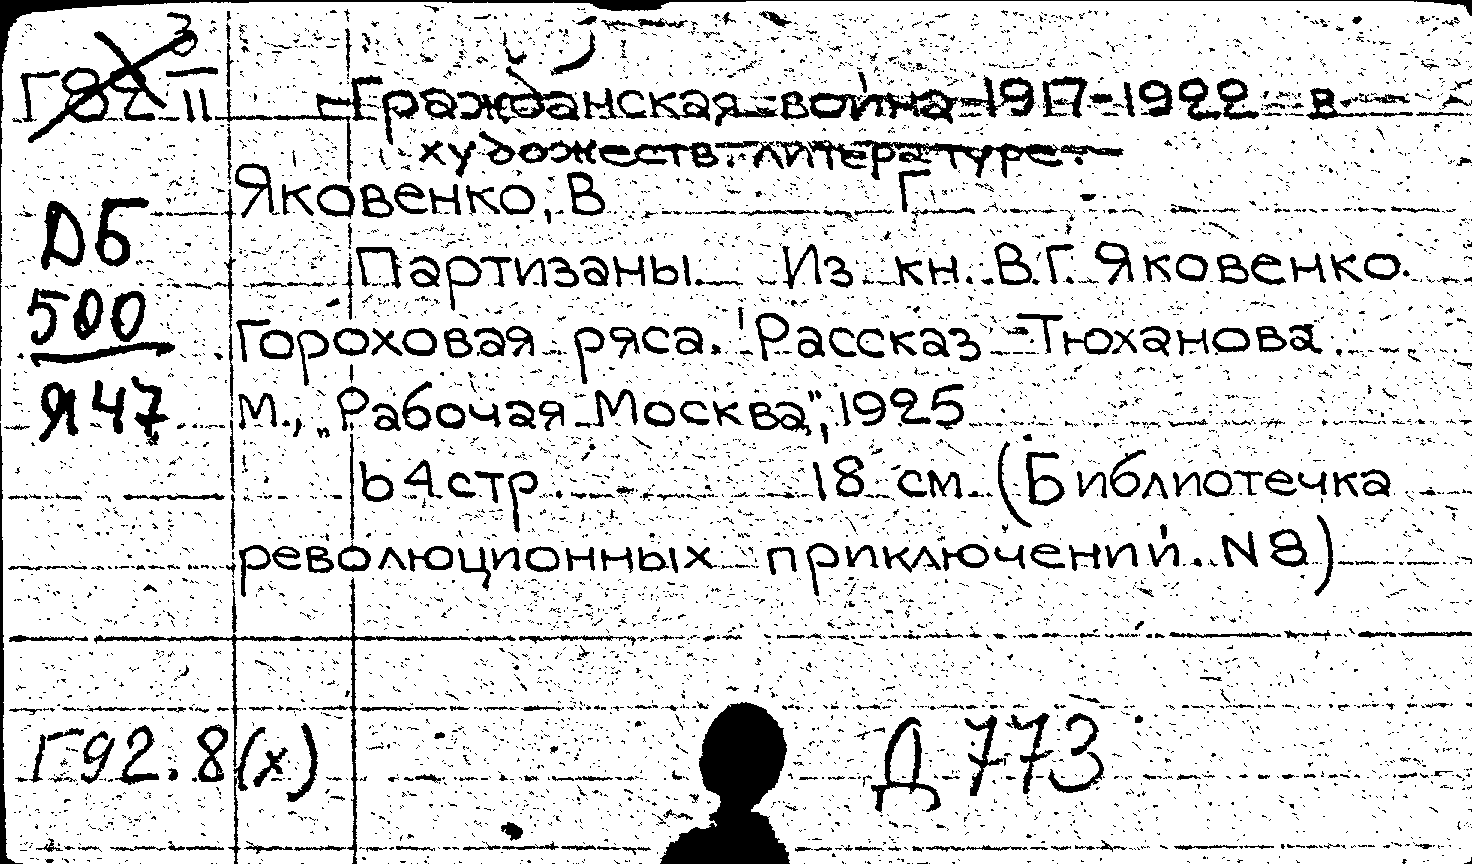 Гражданская война 1917-1922 в
художеств. литературе.
Яковенко, В Г
ДБ
Партизаны. Из кн. В.Г. Яковенко.
500
Гороховая ряса. Рассказ Тюханова.
Я47
М., „Рабочая Москва", 1925
64 стр. 18 см. (Библиотечка
революционных приключений. N8)
Г92.8(х) Д773